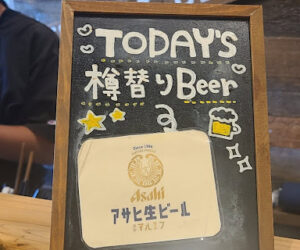 TODAY'S
樽替りBeer
Since 1986
Asahi
アサヒ生ビール
通称マルエフ